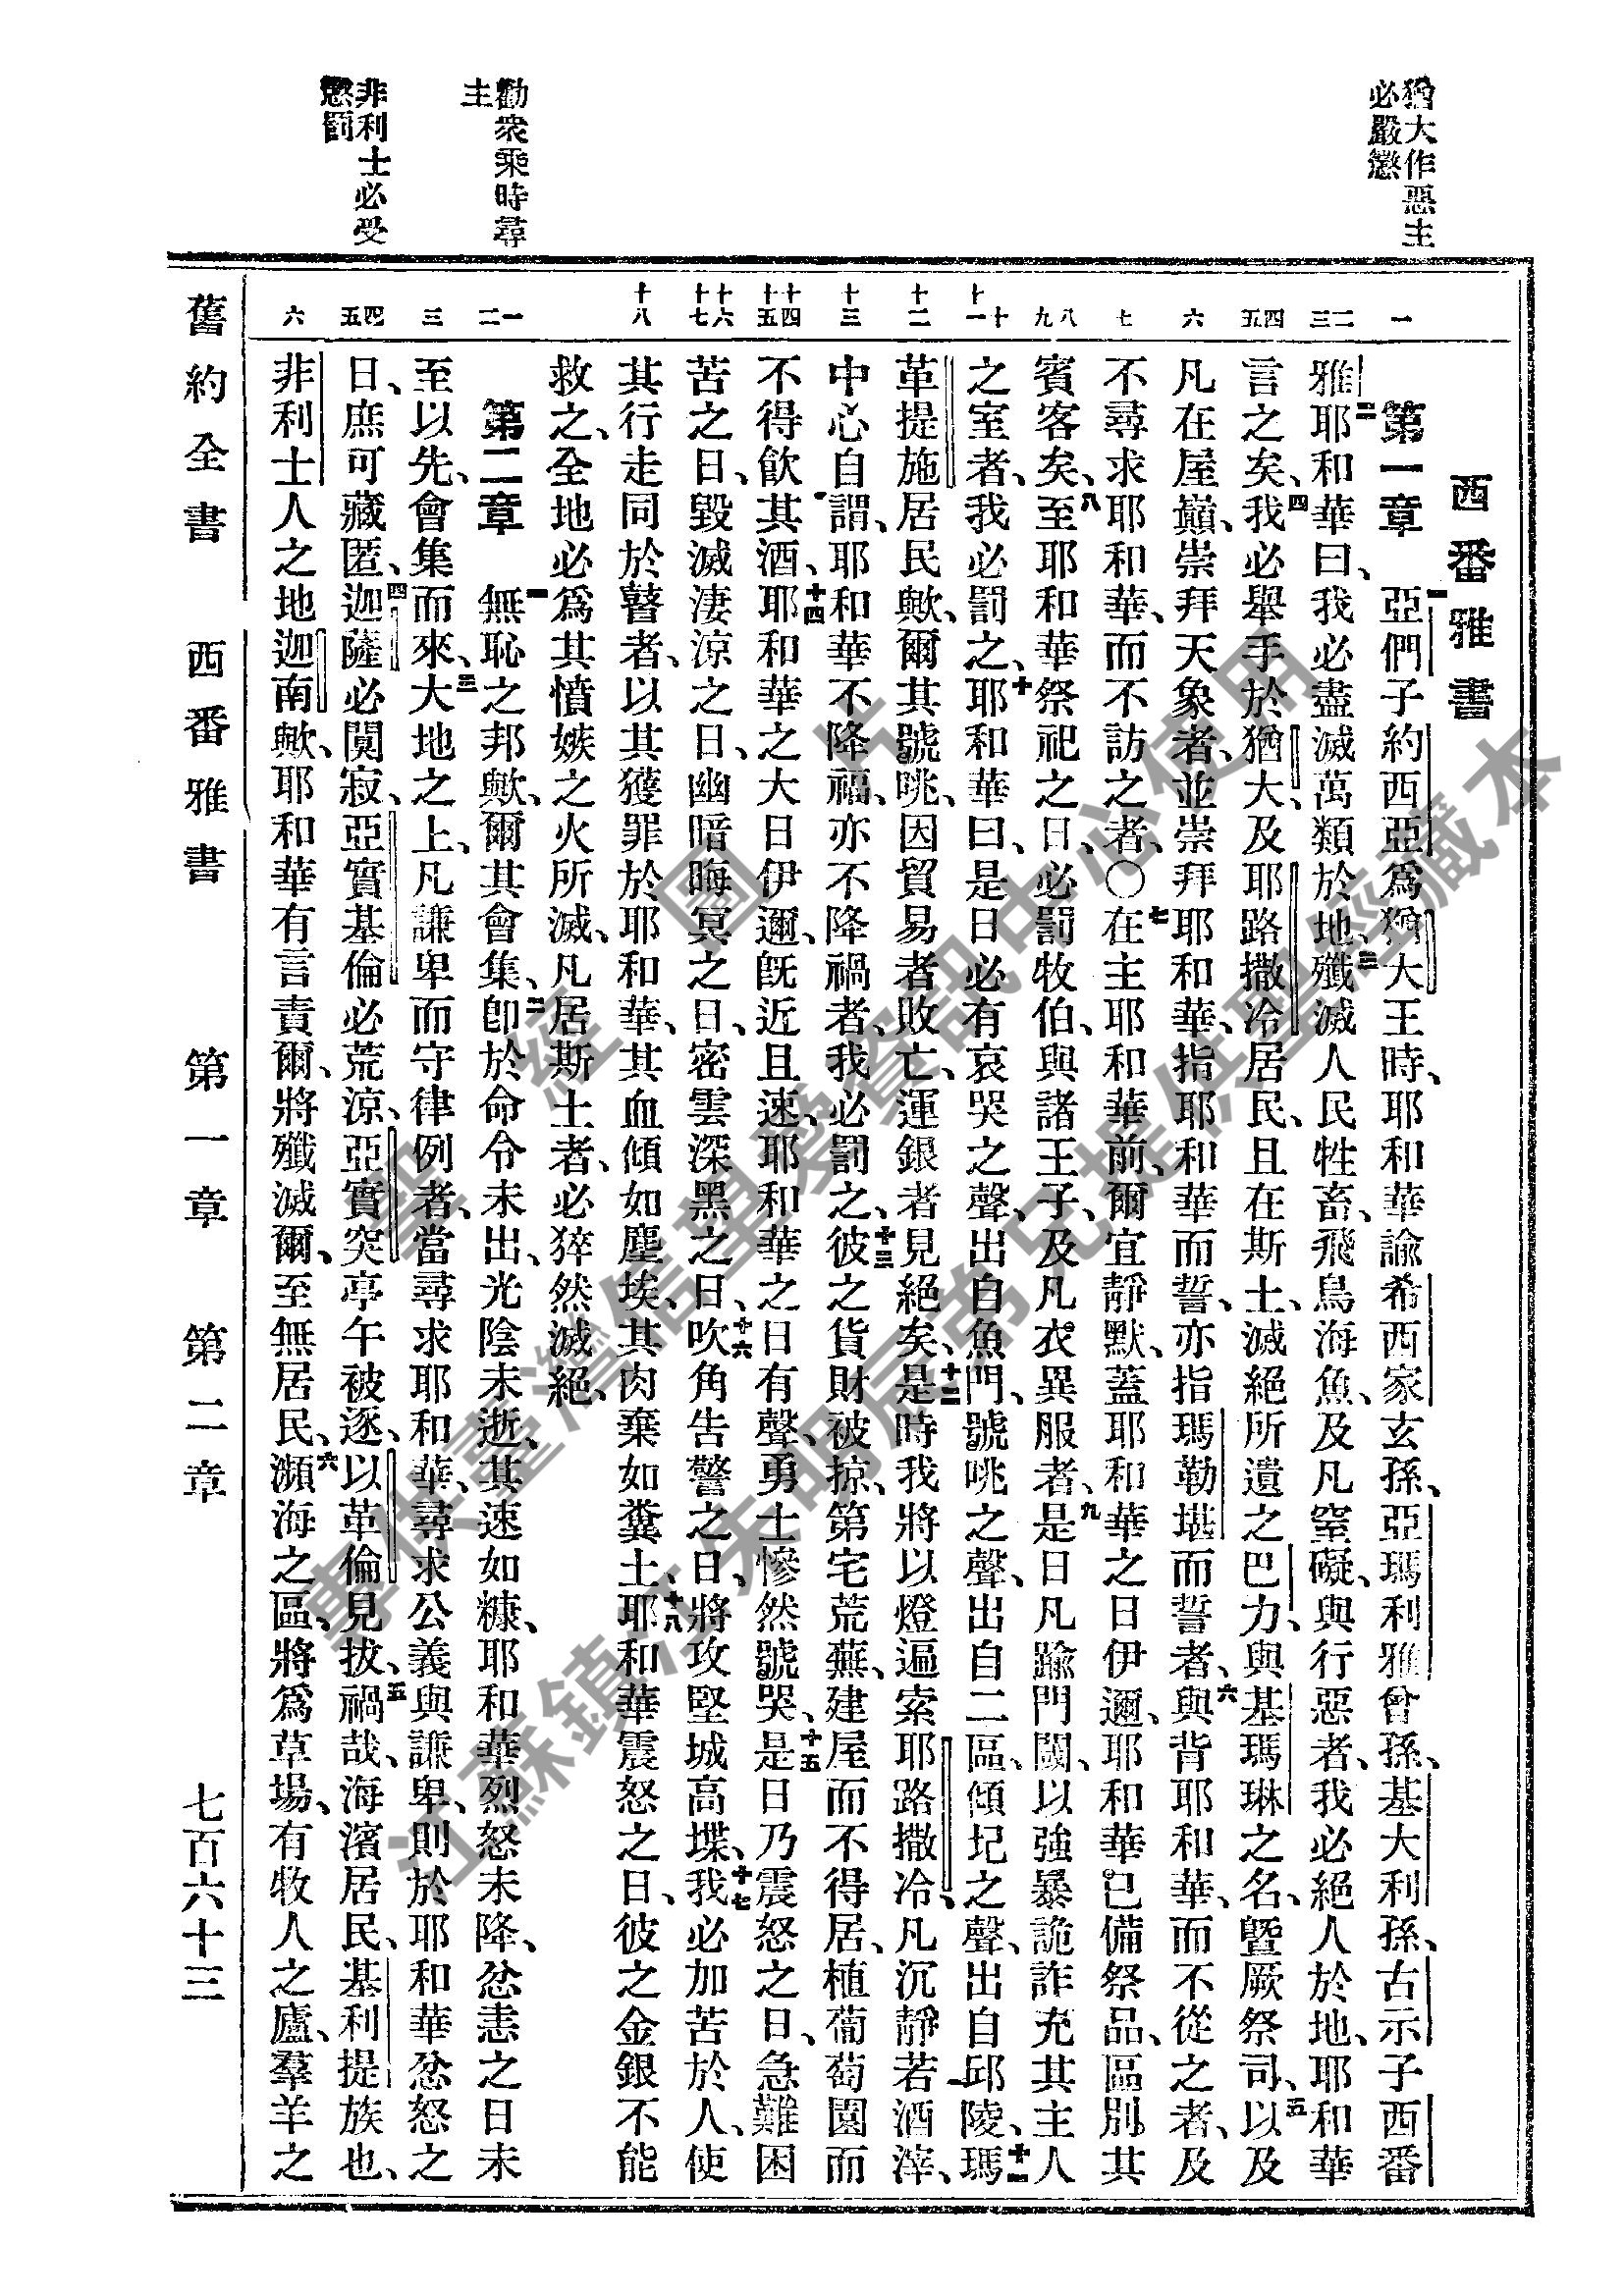 猶大作惡主
必嚴懲
勸衆乘時尋
主
非利士必受
懲罰
西番雅書
一
第一章 一亞們子約西亞爲猶大王時、耶和華諭希西家玄孫、亞瑪利雅曾孫、基大利孫、古示子西番
二三
雅、二耶和華曰、我必盡滅萬類於地、三殲滅人民牲畜、飛鳥海魚、及凡窒礙、與行惡者、我必絕人於地、耶和華
四五
言之矣、四我必舉手於猶大、及耶路撒冷居民、且在斯土、滅絕所遺之巴力、與基瑪琳之名、曁厥祭司、五以及
六
凡在屋巔、崇拜天象者、並崇拜耶和華、指耶和華而誓、亦指瑪勒堪而誓者、六與背耶和華、而不從之者、及
七
不尋求耶和華、而不訪之者、〇七在主耶和華前、爾宜靜默、蓋耶和華之日伊邇、耶和華已備祭品、區別其
八九
賓客矣、八至耶和華祭祀之日、必罰牧伯、與諸王子、及凡衣異服者、九是日凡踰門閾、以強暴詭詐充其主人
十十一
之室者、我必罰之、十耶和華曰、是日必有哀哭之聲、出自魚門、號咷之聲、出自二區、傾圮之聲、出自邱陵、十一瑪
十二
革提施居民歟、爾其號咷、因貿易者敗亡、運銀者見絕矣、十二是時我將以燈遍索耶路撒冷、凡沉靜若酒滓、
十三
中心自謂、耶和華不降福、亦不降禍者、我必罰之、十三彼之貨財被掠、第宅荒蕪、建屋而不得居、植葡萄園而
十四十五
不得飮其酒、十四耶和華之大日伊邇、旣近且速、耶和華之日有聲、勇士慘然號哭、十五是日乃震怒之日、急難困
十六十七
苦之日、毀滅凄涼之日、幽暗晦冥之日、密雲深黑之日、十六吹角告警之日、將攻堅城高堞、十七我必加苦於人、使
十八
其行走同於瞽者、以其獲罪於耶和華、其血傾如塵埃、其肉棄如糞土、十八耶和華震怒之日、彼之金銀不能
救之、全地必爲其憤嫉之火所滅、凡居斯土者、必猝然滅絕、
一二
第二章 一無恥之邦歟、爾其會集、二卽於命令未出、光陰未逝、其速如糠、耶和華烈怒未降、忿恚之日未
三
至以先、會集而來、三大地之上、凡謙卑而守律例者、當尋求耶和華、尋求公義與謙卑、則於耶和華忿怒之
四五
日、庶可藏匿、四迦薩必闃寂、亞實基倫必荒涼、亞實突亭午被逐、以革倫見拔、五禍哉、海濱居民、基利提族也、
六
非利士人之地迦南歟、耶和華有言責爾、將殲滅爾、至無居民、六瀕海之區、將爲草場、有牧人之廬、羣羊之
舊約全書 西番雅書 第一章 第二章 七百六十三
聖經圖片
專供臺灣信望愛資訊中心使用
江蘇鎮江朱明辰弟兄提供聖經藏本